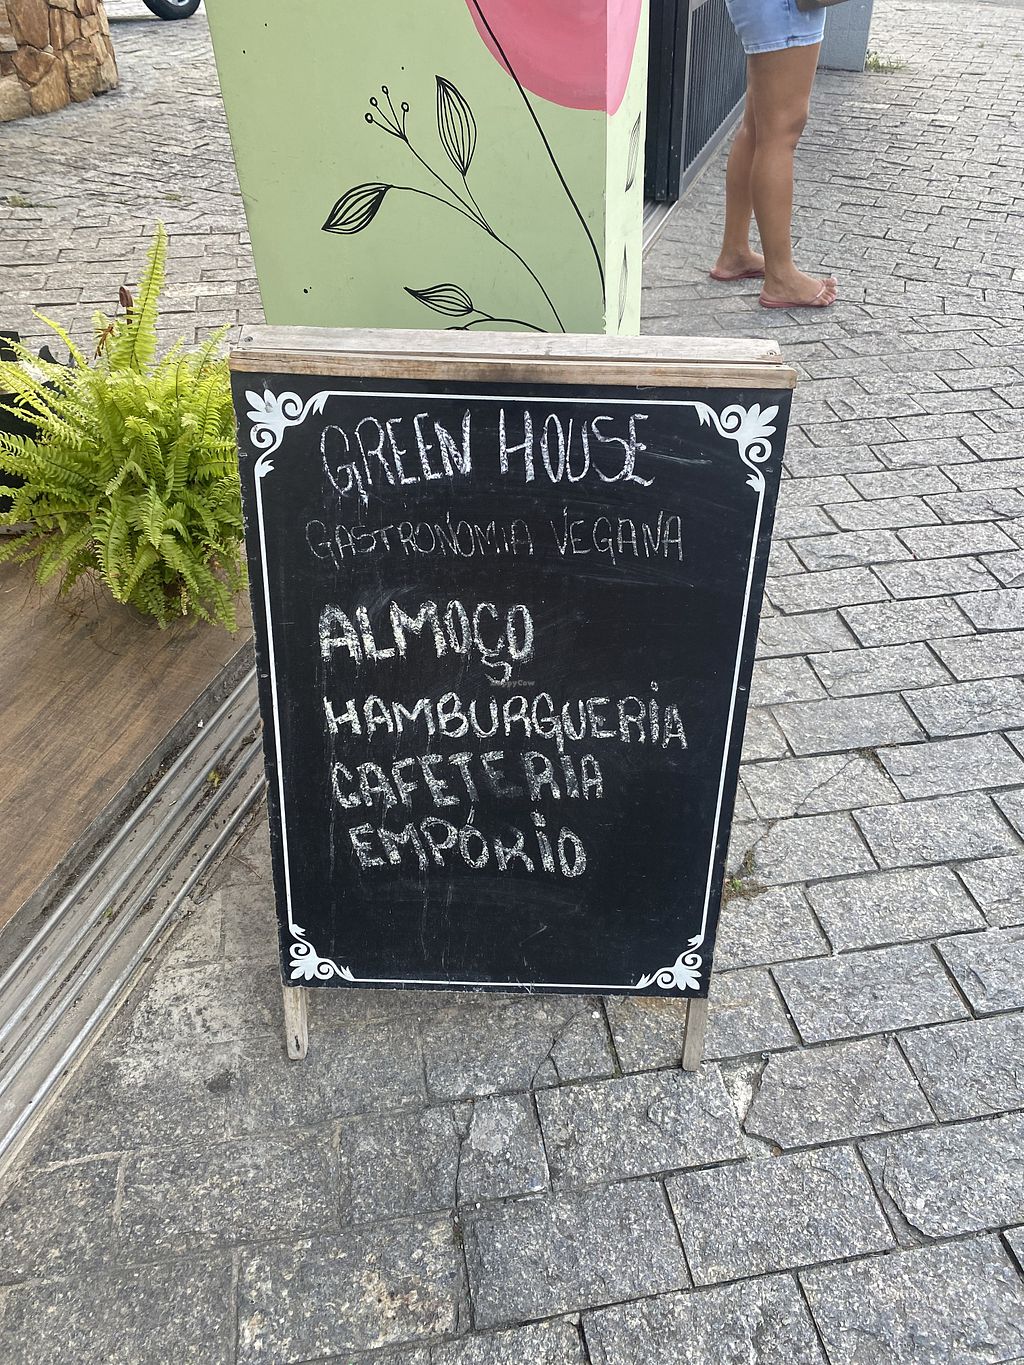 GREEN HOUSE
GASTRONOMIA VEGANA
ALMOÇO
HappyCow
HAMBURGUERIA
CAFETERIA
EMPÓRIO